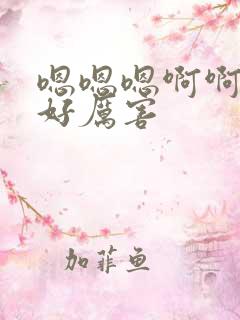 嗯嗯嗯啊啊
好厉害
加菲鱼